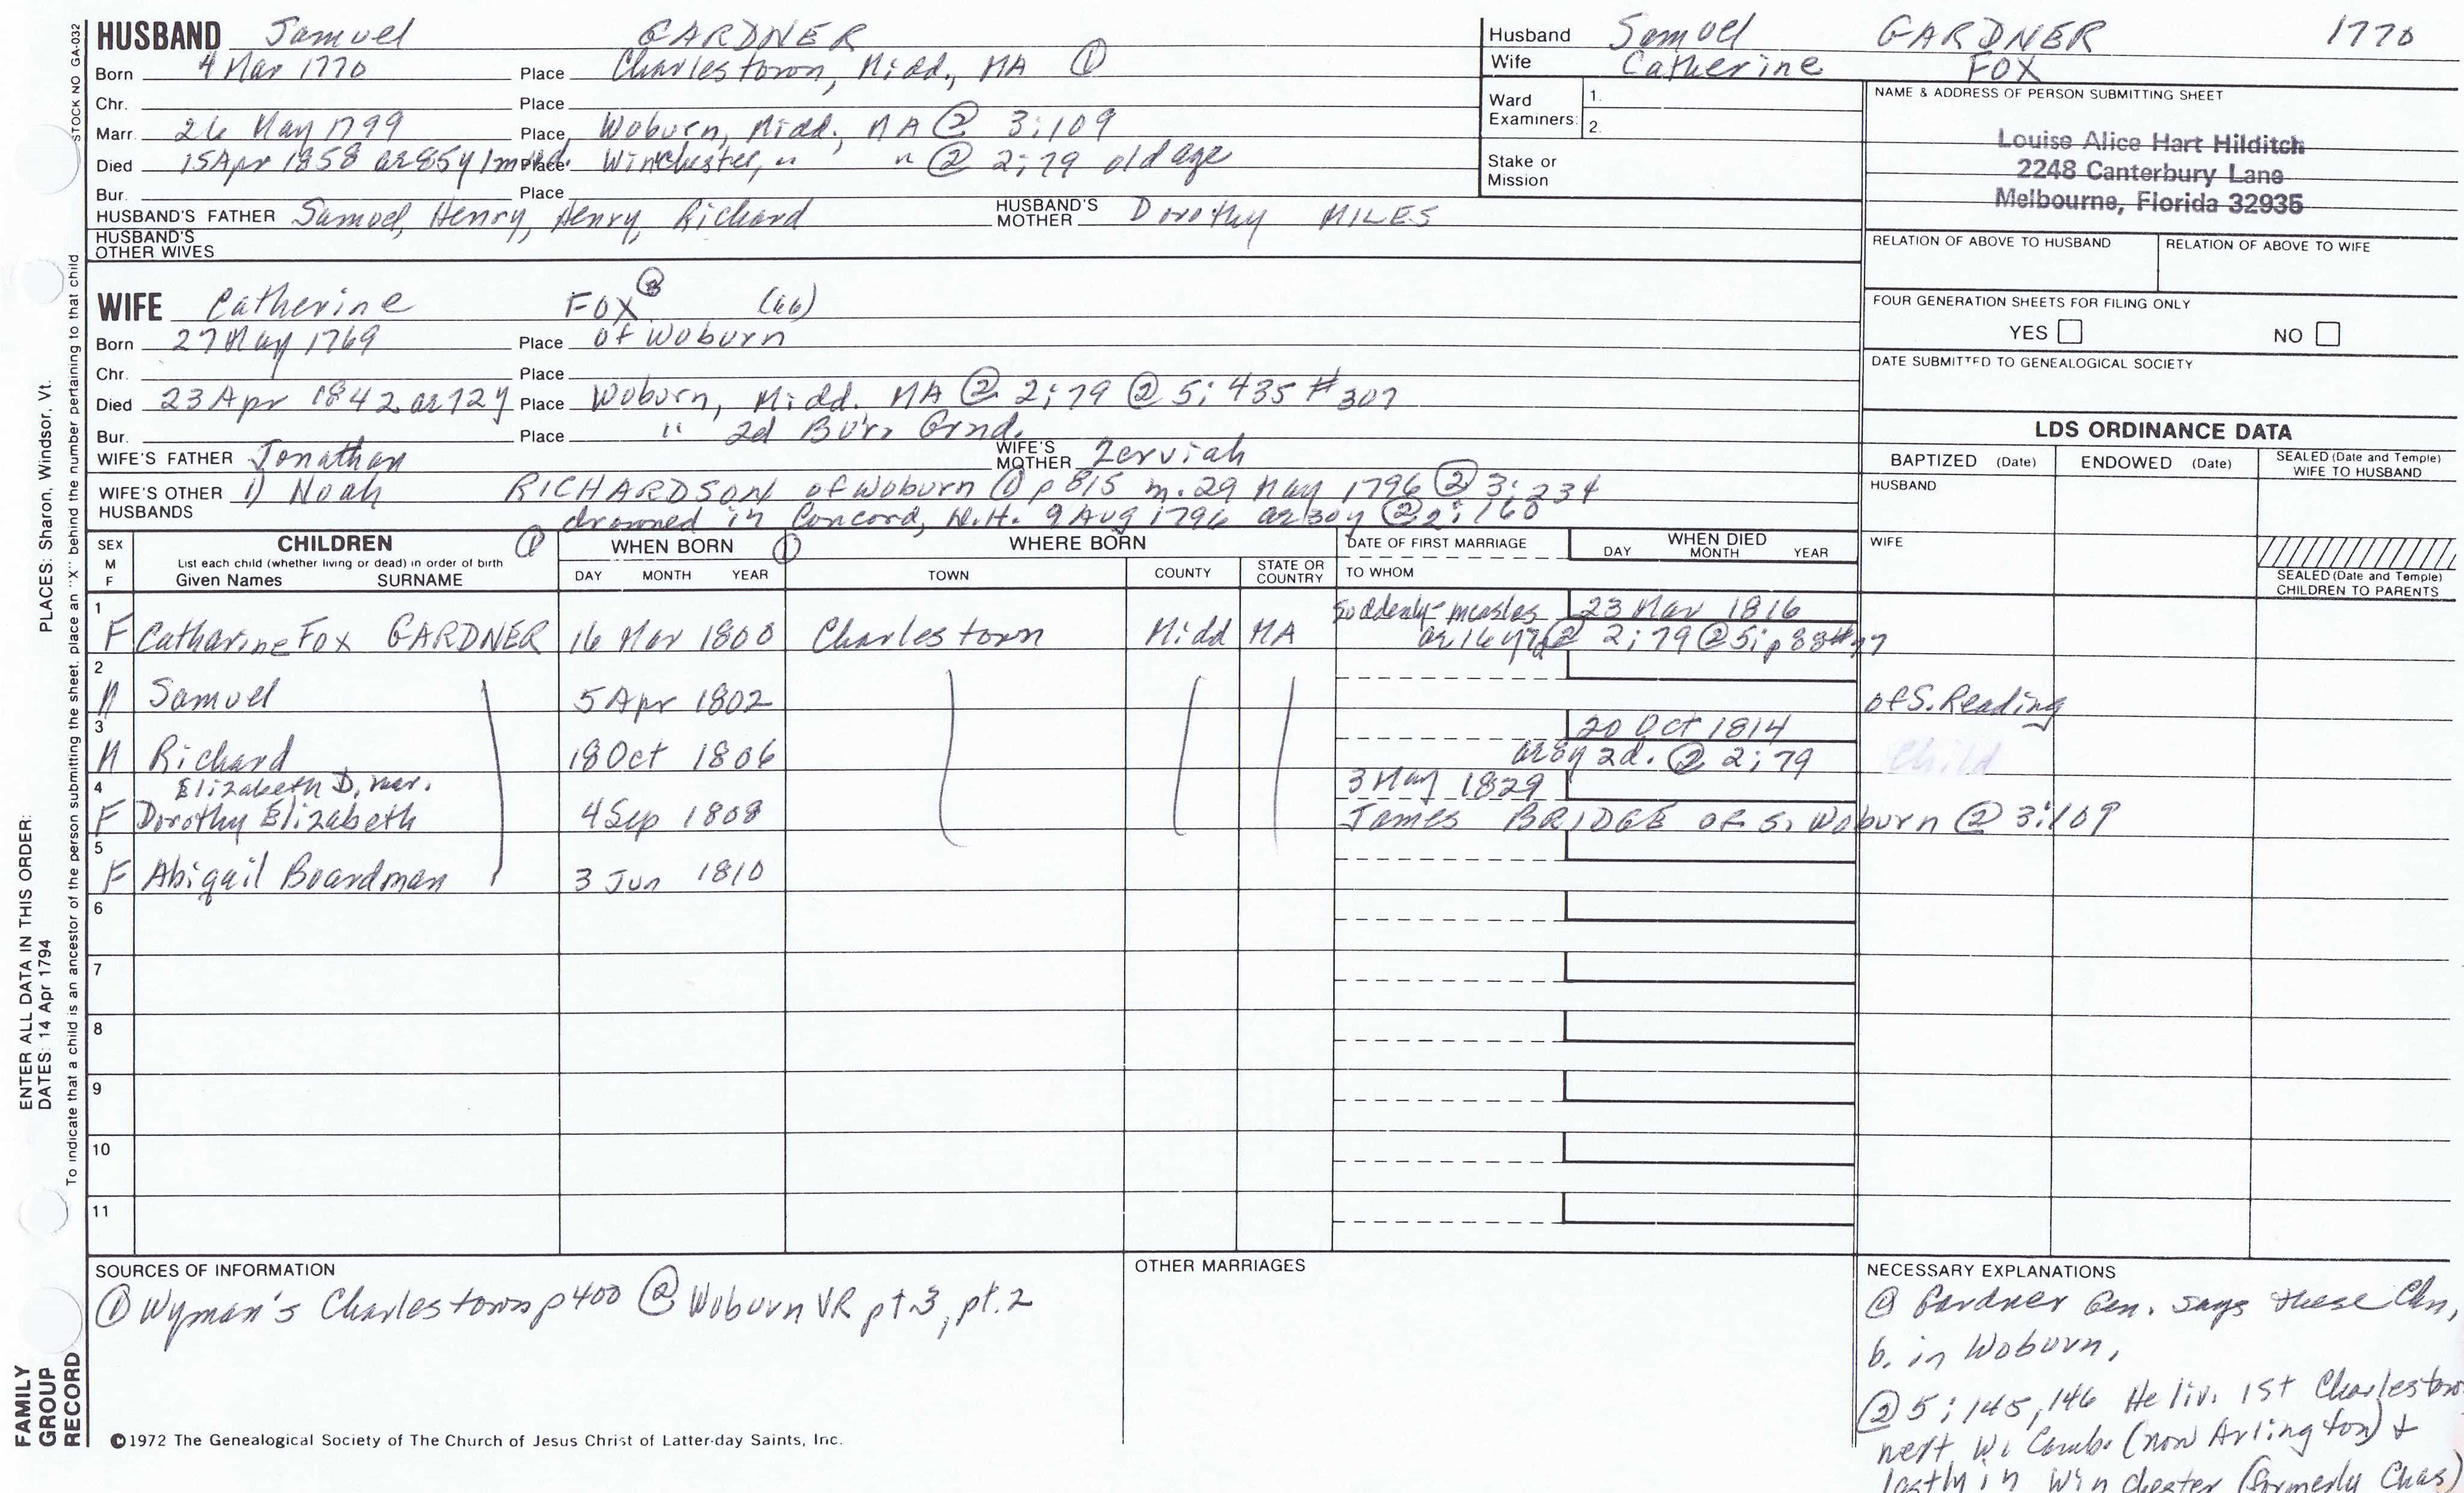 HUSBAND Samuel GARDNER
Born 4 Mar 1770 Place Charlestown, Midd., MA ①
Chr. Place
Marr. 26 May 1799 Place Woburn, Midd., MA @ 3:109
Died 15 Apr 1858 ae 85y 1m Place Winchester, " " @ 2:79 old age
Bur. Place
HUSBAND'S FATHER Samuel, Henry, Henry, Richard HUSBAND'S MOTHER Dorothy MILES
HUSBAND'S OTHER WIVES
Husband Samuel GARDNER 1770
Wife Catherine FOX
Ward Examiners: 1.
2.
Stake or Mission
NAME & ADDRESS OF PERSON SUBMITTING SHEET
Louise Alice Hart Hilditch
2248 Canterbury Lane
Melbourne, Florida 32935
RELATION OF ABOVE TO HUSBAND RELATION OF ABOVE TO WIFE
FOUR GENERATION SHEETS FOR FILING ONLY
YES NO
DATE SUBMITTED TO GENEALOGICAL SOCIETY
WIFE Catherine FOX (66)
Born 27 May 1769 Place of Woburn
Chr. Place
Died 23 Apr 1842 ae 72y Place Woburn, Midd. MA ② 2:79 ② 5:435 #307
Bur. Place " 2d Bur. Grnd.
WIFE'S FATHER Jonathan WIFE'S MOTHER Zerviah
WIFE'S OTHER HUSBANDS 1) Noah RICHARDSON of Woburn ① p815 m. 29 May 1796 ② 3:234
drowned in Concord, N.H. 9 Aug 1796 ae 30y ② 2:160
LDS ORDINANCE DATA
BAPTIZED (Date) ENDOWED (Date) SEALED (Date and Temple) WIFE TO HUSBAND
HUSBAND
WIFE
SEALED (Date and Temple) CHILDREN TO PARENTS
SEX M F CHILDREN ① WHEN BORN ① WHERE BORN DATE OF FIRST MARRIAGE WHEN DIED
List each child (whether living or dead) in order of birth
Given Names SURNAME DAY MONTH YEAR TOWN COUNTY STATE OR COUNTRY TO WHOM DAY MONTH YEAR
1 Suddenly measles 23 Mar 1816
F Catharine Fox GARDNER 16 Mar 1800 Charlestown Midd MA ae 16y 7d ② 2:79 ② 5:p88
2
M Samuel 5 Apr 1802 of S. Reading
3 20 Oct 1814
M Richard 18 Oct 1806 ae 8y 2d. ② 2:79 Child
4 Elizabeth D, mar. 3 May 1829
F Dorothy Elizabeth 4 Sep 1808 James BRIDGE of S. Woburn ② 3:109
5
F Abigail Boardman 3 Jun 1810
6
7
8
9
10
11
SOURCES OF INFORMATION
① Wyman's Charlestown p400 ② Woburn VR pt.3, pt.2
OTHER MARRIAGES
NECESSARY EXPLANATIONS
@ Gardner Gen. says these Chn,
b. in Woburn,
② 5:145,146 He liv. 1st Charlestown
next W. Camb. (now Arlington) +
lastly in Winchester (formerly Chas)
©1972 The Genealogical Society of The Church of Jesus Christ of Latter-day Saints, Inc.
STOCK NO GA-032
PLACES: Sharon, Windsor, Vt.
To indicate that a child is an ancestor of the person submitting the sheet, place an "X" behind the number pertaining to that child
ENTER ALL DATA IN THIS ORDER:
DATES: 14 Apr 1794
FAMILY
GROUP
RECORD